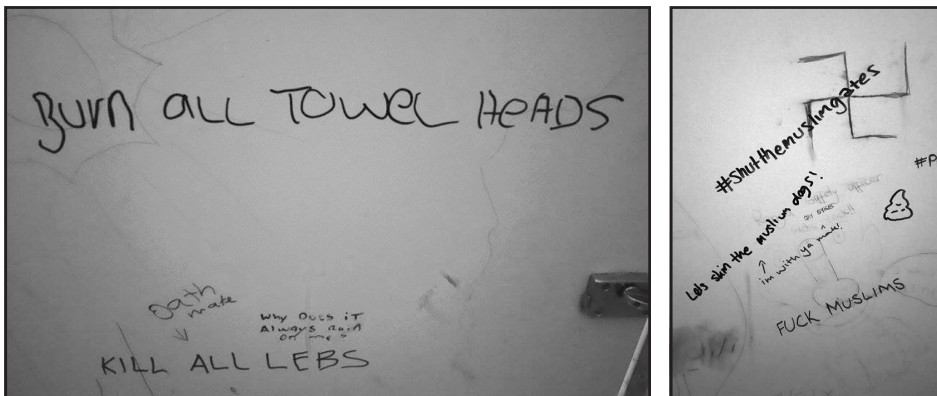 Burn all Towel HeADS
Oath
mate
Why Does iT
Always Rain
on me?
KILL ALL LEBS
#Shutthemuslimgates
#P
Lets skin the muslim dogs!
im with ya mate!
FUCK MUSLIMS